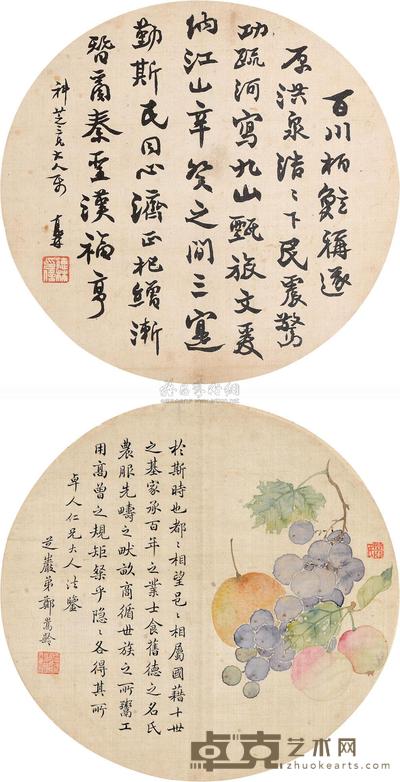 百川柏鯀稱遂
原洪泉浩々下民震驚
功疏河寫九山甄旅文爰
納江山辛癸之間三寔
勤斯民同心濟正杞繒漸
替商秦至漢福亨
於斯時也都々相望邑々相屬國藉十世
之基家承百年之業士食舊德之名氏
農服先疇之畎畝商循世族之所鬻工
用高曾之規矩粲乎隱々各得其所
卓人仁兄大人法鑒
芝巖弟鄭嵩齡
卓克艺术网
www.zhuokearts.com